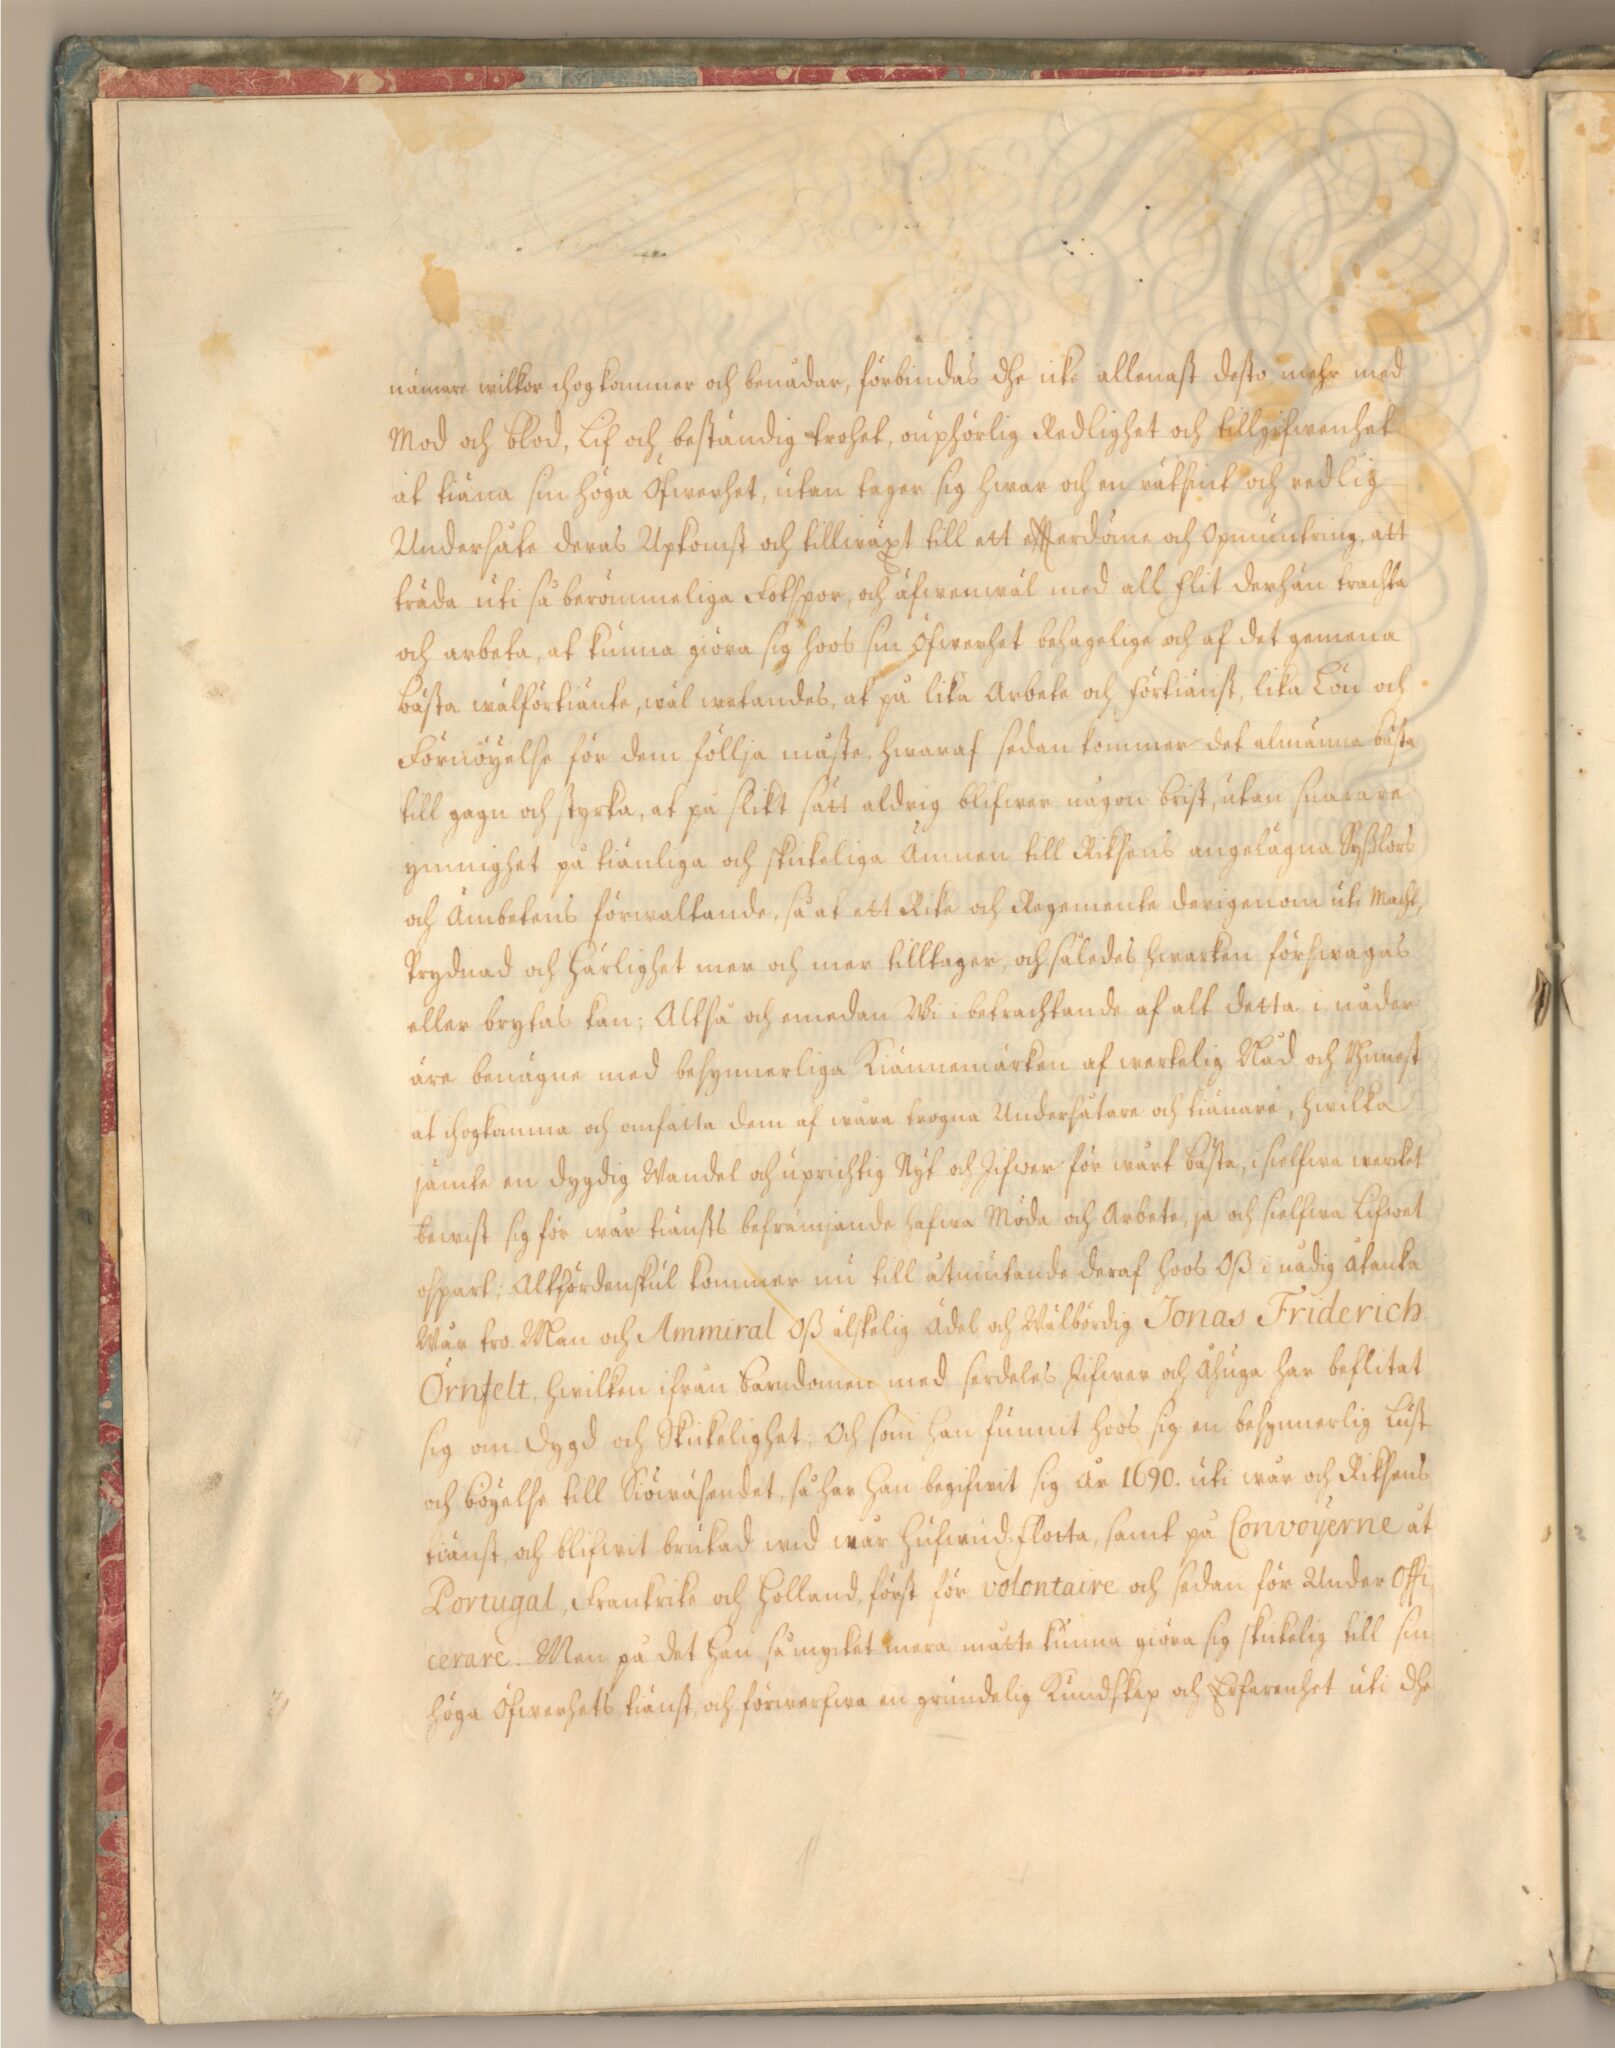 nämare wilkor ihogkommer och benådar, förbindas dhe icke allenast desto mehr med
Mod och blod, Lif och beständig trohet, ouphörlig Redlighet och tillgifwenhet
at tiäna sin höga Öfwerhet, utan tager sig hwar och en rätsint och redlig
Undersåte deras Upkomst och tillwäxt till ett efterdöme och Opmuntring, att
träda uti så berömmeliga Fotspor, och äfwenwäl med all flit derhän trachta
och arbeta, at kunna giöra sig hoos sin Öfwerhet behagelige och af det gemena
bästa wälförtiänte, wäl wetandes, at på lika Arbete och förtiänst, lika Lön och
Förnöyelse för dem föllja måste, hwaraf sedan kommer det almänna bästa
till gagn och styrka, at på slikt sätt aldrig blifwer någon brist, utan snarare
ymnighet på tiänliga och skickeliga Ämnen till Riksens angelägna Syßlors
och Ämbetens förwaltande, så at ett Rike och Regemente derigenom uti Macht,
Prydnad och härlighet mer och mer tilltager, och således hwarken förswagas
eller brytas kan; Altså och emedan Wi i betrachtande af alt detta i nåder
äre benägne med besynnerliga Kiännemärken af werkelig Nåd och Ynnest
at ihogkomma och omfatta dem af wåra trogna Undersåtare och tiänare, hwilka
jämte en dygdig Wandel och uprichtig Nijt och Jifwer för wårt bästa, i sielfwa wercket
bewist sig för wår tiänsts befrämjande hafwa Möda och Arbete, ja och sielfwa Lifwet
ospart; Altfördenskul kommer nu till åtniutande deraf hoos Oß i nådig åtanka
Wår tro Man och Ammiral Oß älskelig Ädel och Wälbördig Jonas Friderich
Örnfelt, hwilken ifrån barndomen med serdeles Jifwer och Åhuga har beflitat
sig om dygd och Skickelighet; Och som han funnit hoos sig en besynnerlig Lust
och böyelse till Siöwäsendet, så har han begifwit sig År 1690. uti wår och Riksens
tiänst, och blifwit brukad wid wår hufwud Flotta, samt på Convoyerne åt
Portugal, Frankrike och Holland, först för volontaire och sedan för Under Offi-
cerare. Men på det han så mycket mera måtte kunna giöra sig skickelig till sin
höga Öfwerhets tiänst, och förwerfwa en grundelig Kundskap och Erfarenhet uti dhe